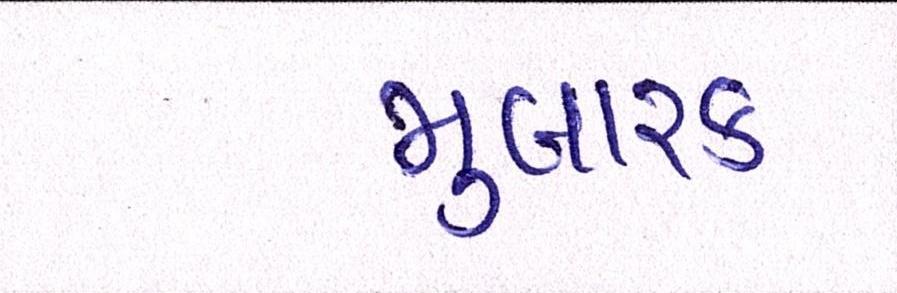 મુબારક